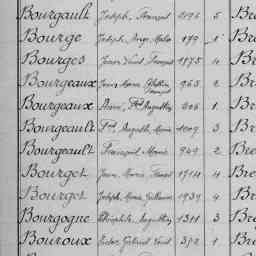 Bourgault Joseph, François 2196 5 Bre
Bourge Joseph, Ange, Malo 199 1 Bre
Bourges Jean, François 1175 4 Bre
Bourgeaux Jean, Marie, François 965 2 Bre
Bourgeaux Pierre, Augustin 606 1 Bre
Bourgeault Auguste, Marie 1009 3 Bre
Bourgeault François, Marie 949 2 Bre
Bourget Jean, Marie, 1714 4 Bre
Bourget Joseph, Marie, Guillaume 1939 4 Bre
Bourgogne Théophile, Augustin 1311 3 Bre
Bouroux Victor, Gabriel 372 1 Bre